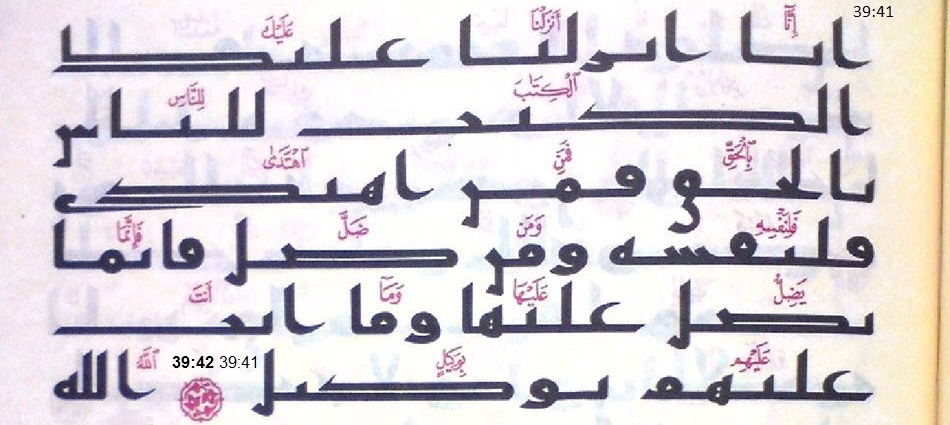 39:41
إِنَّآ أَنزَلْنَا عَلَيْكَ
انا انزلنا عليك
ٱلْكِتَٰبَ لِلنَّاسِ
الكتب للناس
بِٱلْحَقِّ فَمَنِ ٱهْتَدَىٰ
بالحق فمن اهتدى
فَلِنَفْسِهِۦ وَمَن ضَلَّ فَإِنَّمَا
فلنفسه ومن ضل فانما
يَضِلُّ عَلَيْهَا وَمَآ أَنتَ
يضل عليها وما انت
عَلَيْهِم بِوَكِيلٍ 39:41 39:42 ٱللَّهُ
عليهم بوكيل الله